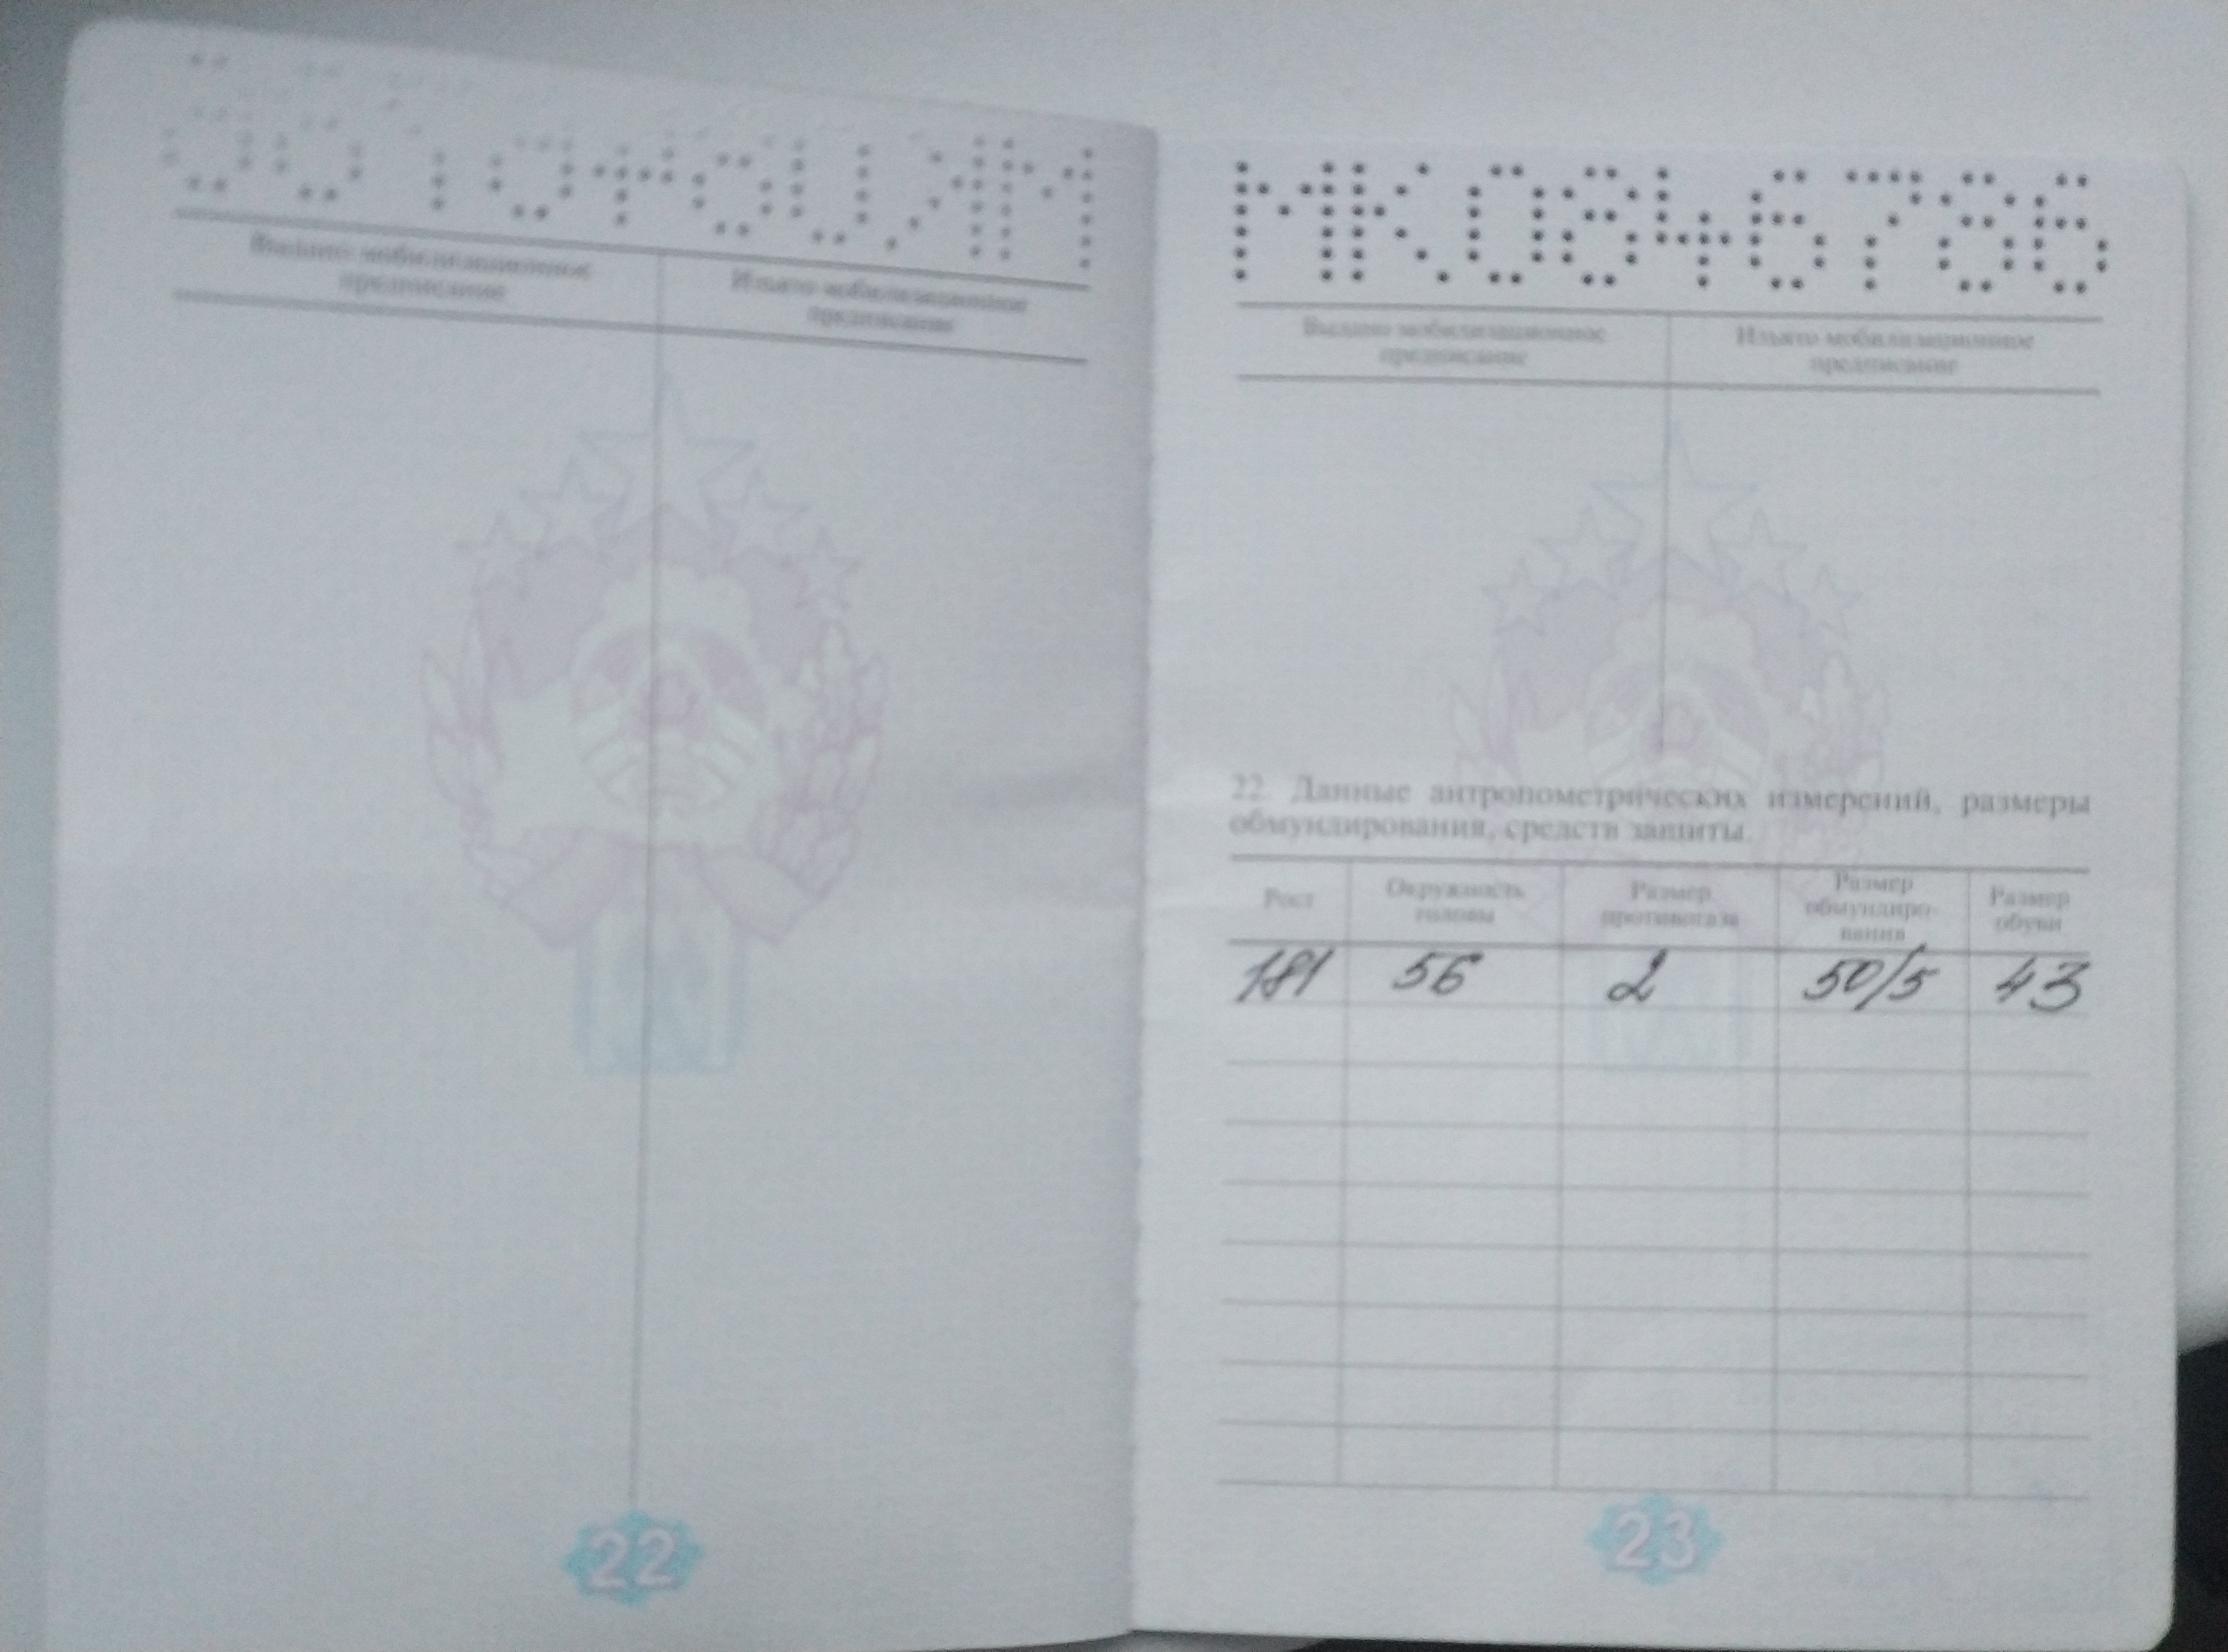 Выдано мобилизационное
предписание
Изъято мобилизационное
предписание
22
МК 0846786
Выдано мобилизационное
предписание
Изъято мобилизационное
предписание
22. Данные антропометрических измерений, размеры
обмундирования, средств защиты.
Рост
Окружность
головы
Размер
противогаза
Размер
обмундиро-
вания
Размер
обуви
181 56 2 50/5 43
23